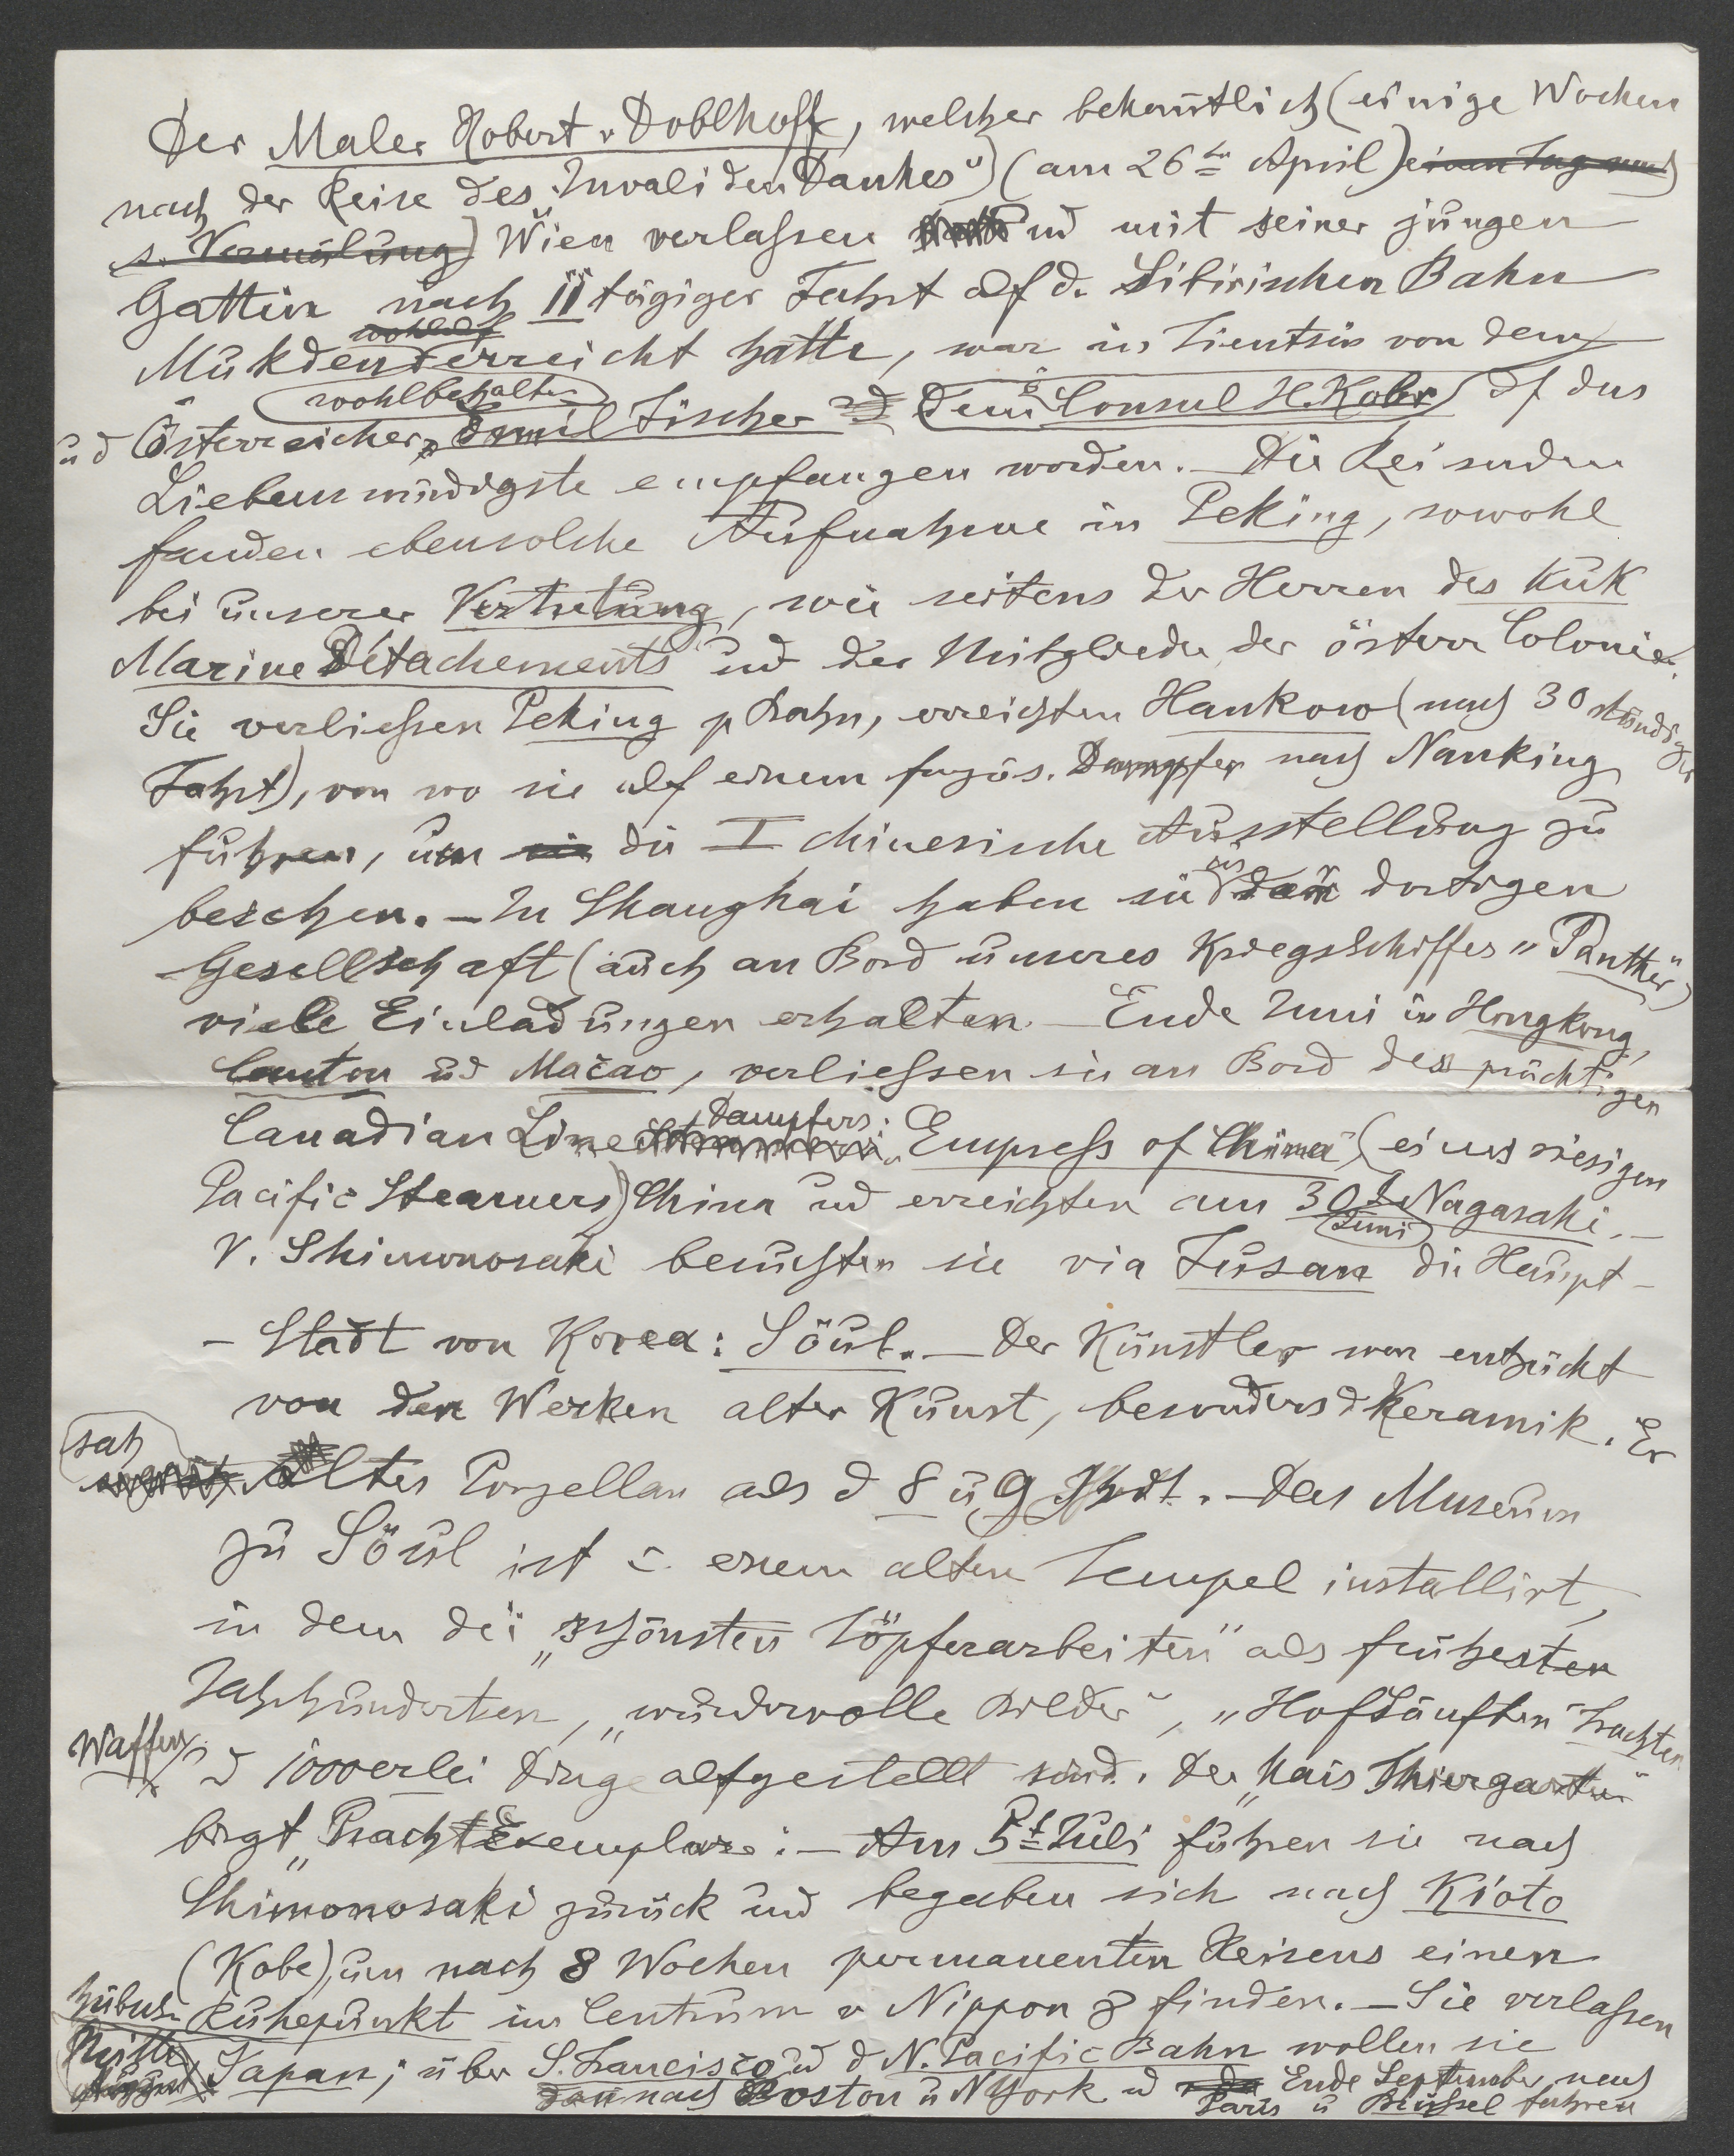 Der Maler Robert v Doblhoff, welcher bekanntlich (einige Wochen
nach der Reise des „Invaliden Dankes") (am 26ten April) einen Tag nach
s. Vermälung) Wien verlaßen und mit seiner jungen
Gattin nach 11 tägiger Fahrt auf d. Sibirischen Bahn
Mukden erreicht hatte, war in Tientsin von dem
wohlbehalten
und Österreicher Emil Fischer dem Consul H. Kobr auf das
Liebenswürdigste empfangen worden. – Die Reisenden
fanden ebensolche Aufnahme in Peking, sowohl
bei unserer Vertretung, wie seitens der Herren des KuK
Marine Détachements und der Mitglieder der österr Colonie.
Sie verließen Peking p Bahn, erreichten Hankow (nach 30 stündiger
Fahrt), von wo sie auf einem französ. Dampfer nach Nanking
fuhren, um die I chinesische Ausstellung zu
besehen. – In Shanghai haben sie aus der dortigen
Gesellschaft (auch an Bord unseres Kriegsschiffes „Panther")
viele Einladungen erhalten. – Ende Juni in Hongkong,
Canton und Macao, verließen sie an Bord des prächtigen
Canadian Line Dampfers: „Empress of China" (eines riesigen
Pacific Steamers) China und erreichten am 30t Juni Nagasaki. –
V. Shimonosaki besuchten sie via Fusan die Haupt-
- Stadt von Korea: Söul. – Der Künstler war entzückt
von den Werken alter Kunst, besonders d Keramik. Er
sah altes Porzellan aus d 8 u 9 Jhrdt. – Das Museum
zu Söul ist i. einem alten Tempel installirt,
in dem die „schönsten Töpferarbeiten" aus frühesten
Jahrhunderten, „wundervolle Bilder", „Hofsänften" Trachten
Waffen und 1000erlei Dinge aufgestellt sind. Der Thiergarten"
birgt „Pracht Exemplare: – Am 5t Juli fuhren sie nach
Shimonosaki zurück und begaben sich nach Kioto
(Kobe), um nach 8 Wochen permanenten Reisens einen
Ruhepunkt im Centrum v Nippon z finden. – Sie verlaßen
Mitte August Japan; über S. Francisco und d N. Pacific Bahn wollen sie
dann nach Boston u NYork und Ende September nach
Paris u Brüssel fahren